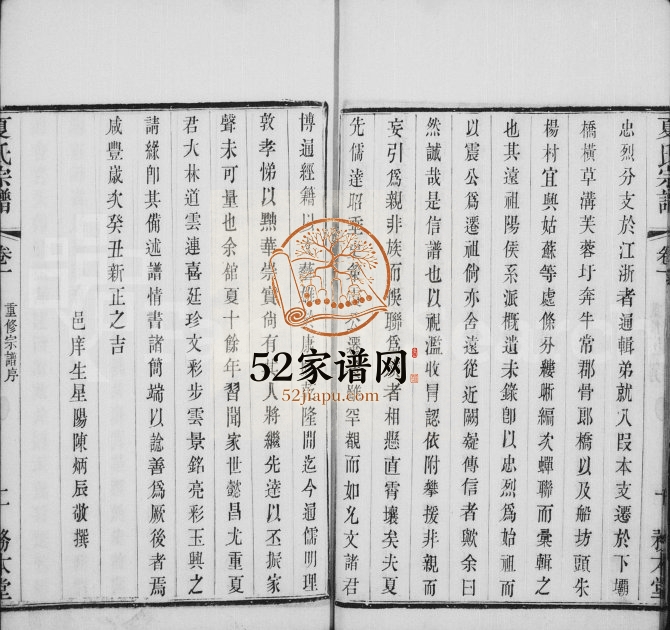 忠烈分支於江浙者通輯弟就入叚本支遷於下壩
橋橫草溝芙蓉圩奔牛常郡骨郎橋以及船坊頭朱
楊村宜興姑蘇等處條分縷晰編次蟬聯而彙輯之
也其遠祖陽侯系派概遺未錄卽以忠烈爲始祖而
以震公爲遷祖倘亦舍遠從近闕疑傳信者歟余曰
然誠哉是信譜也以視濫收冒認依附攀援非親而
妄引爲親非族而悞聯爲者相懸直霄壤矣夫夏
先儒達昭罕覯而如允文諸君
博通經籍隆間迄今通儒明理
敦孝悌以黜華崇實尚有人將繼先達以丕振家
聲未可量也余舘夏十餘年習聞家世懿昌尤重夏
君大林道雲連喜廷珍文彩步雲景銘亮彩玉興之
請緣卽其備述譜情書諸簡端以諗善爲厥後者焉
咸豐歲次癸丑新正之吉
邑庠生星陽陳炳辰敬撰
夏氏宗譜
卷一
重修宗譜序
務本堂
52家谱网
52jiapu.com